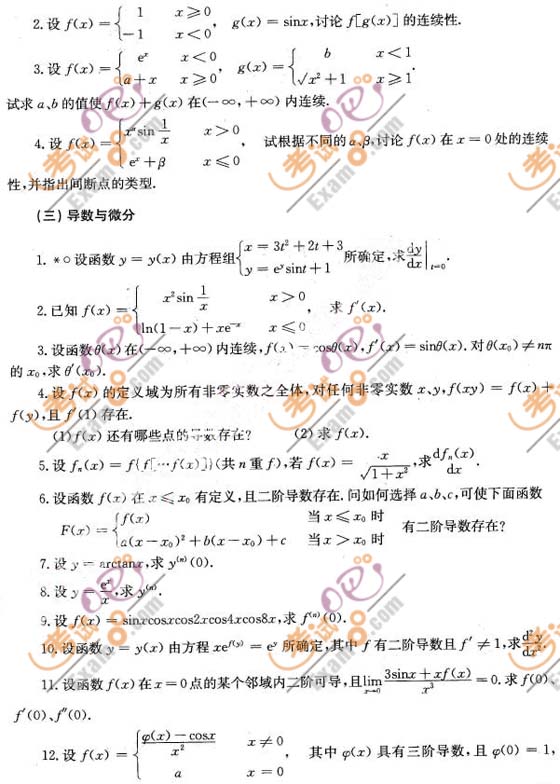 2.设 f(x)={ 1 x≥0, -1 x<0, g(x)=sinx,讨论 f[g(x)]的连续性.
3.设 f(x)={ eˣ x<0, a+x x≥0, g(x)={ b x<1, √(x²+1) x≥1.
试求 a、b 的值使 f(x)+g(x)在(-∞,+∞)内连续.
4.设 f(x)={ xᵅsin 1/x x>0, eˣ+β x≤0, 试根据不同的 α、β,讨论 f(x)在 x=0 处的连续
性,并指出间断点的类型.
(三) 导数与微分
1. *○设函数 y=y(x)由方程组{ x=3t²+2t+3, y=eʸsint+1 所确定,求 dy/dx|ₜ₌₀.
2.已知 f(x)={ x²sin 1/x x>0, ln(1-x)+xe⁻ˣ x≤0, 求 f′(x).
3.设函数θ(x)在(-∞,+∞)内连续,f(x)=cosθ(x),f′(x)=sinθ(x).对θ(x₀)≠nπ
的 x₀,求θ′(x₀).
4.设 f(x)的定义域为所有非零实数之全体,对任何非零实数 x、y,f(xy)=f(x)+
f(y),且 f′(1)存在.
(1)f(x)还有哪些点的导数存在? (2)求 f(x).
5.设 fₙ(x)=f{f[…f(x)]}(共 n 重 f),若 f(x)=x/√(1+x²),求 dfₙ(x)/dx.
6.设函数 f(x)在 x≤x₀ 有定义,且二阶导数存在.问如何选择 a、b、c,可使下面函数
F(x)={ f(x) 当 x≤x₀ 时, a(x-x₀)²+b(x-x₀)+c 当 x>x₀ 时 有二阶导数存在?
7.设 y=arctanx,求 y⁽ⁿ⁾(0).
8.设 y=eˣ/x,求 y⁽ⁿ⁾.
9.设 f(x)=sinxcosxcos2xcos4xcos8x,求 f⁽ⁿ⁾(0).
10.设函数 y=y(x)由方程 xe^f(y)=eʸ 所确定,其中 f 有二阶导数且 f′≠1,求 d²y/dx².
11.设函数 f(x)在 x=0 点的某个邻域内二阶可导,且 lim x→0 (3sinx+xf(x))/x³=0.求 f(0)、
f′(0)、f″(0).
12.设 f(x)={ (φ(x)-cosx)/x² x≠0, a x=0, 其中 φ(x)具有三阶导数,且 φ(0)=1,
考试吧
Exam8.com